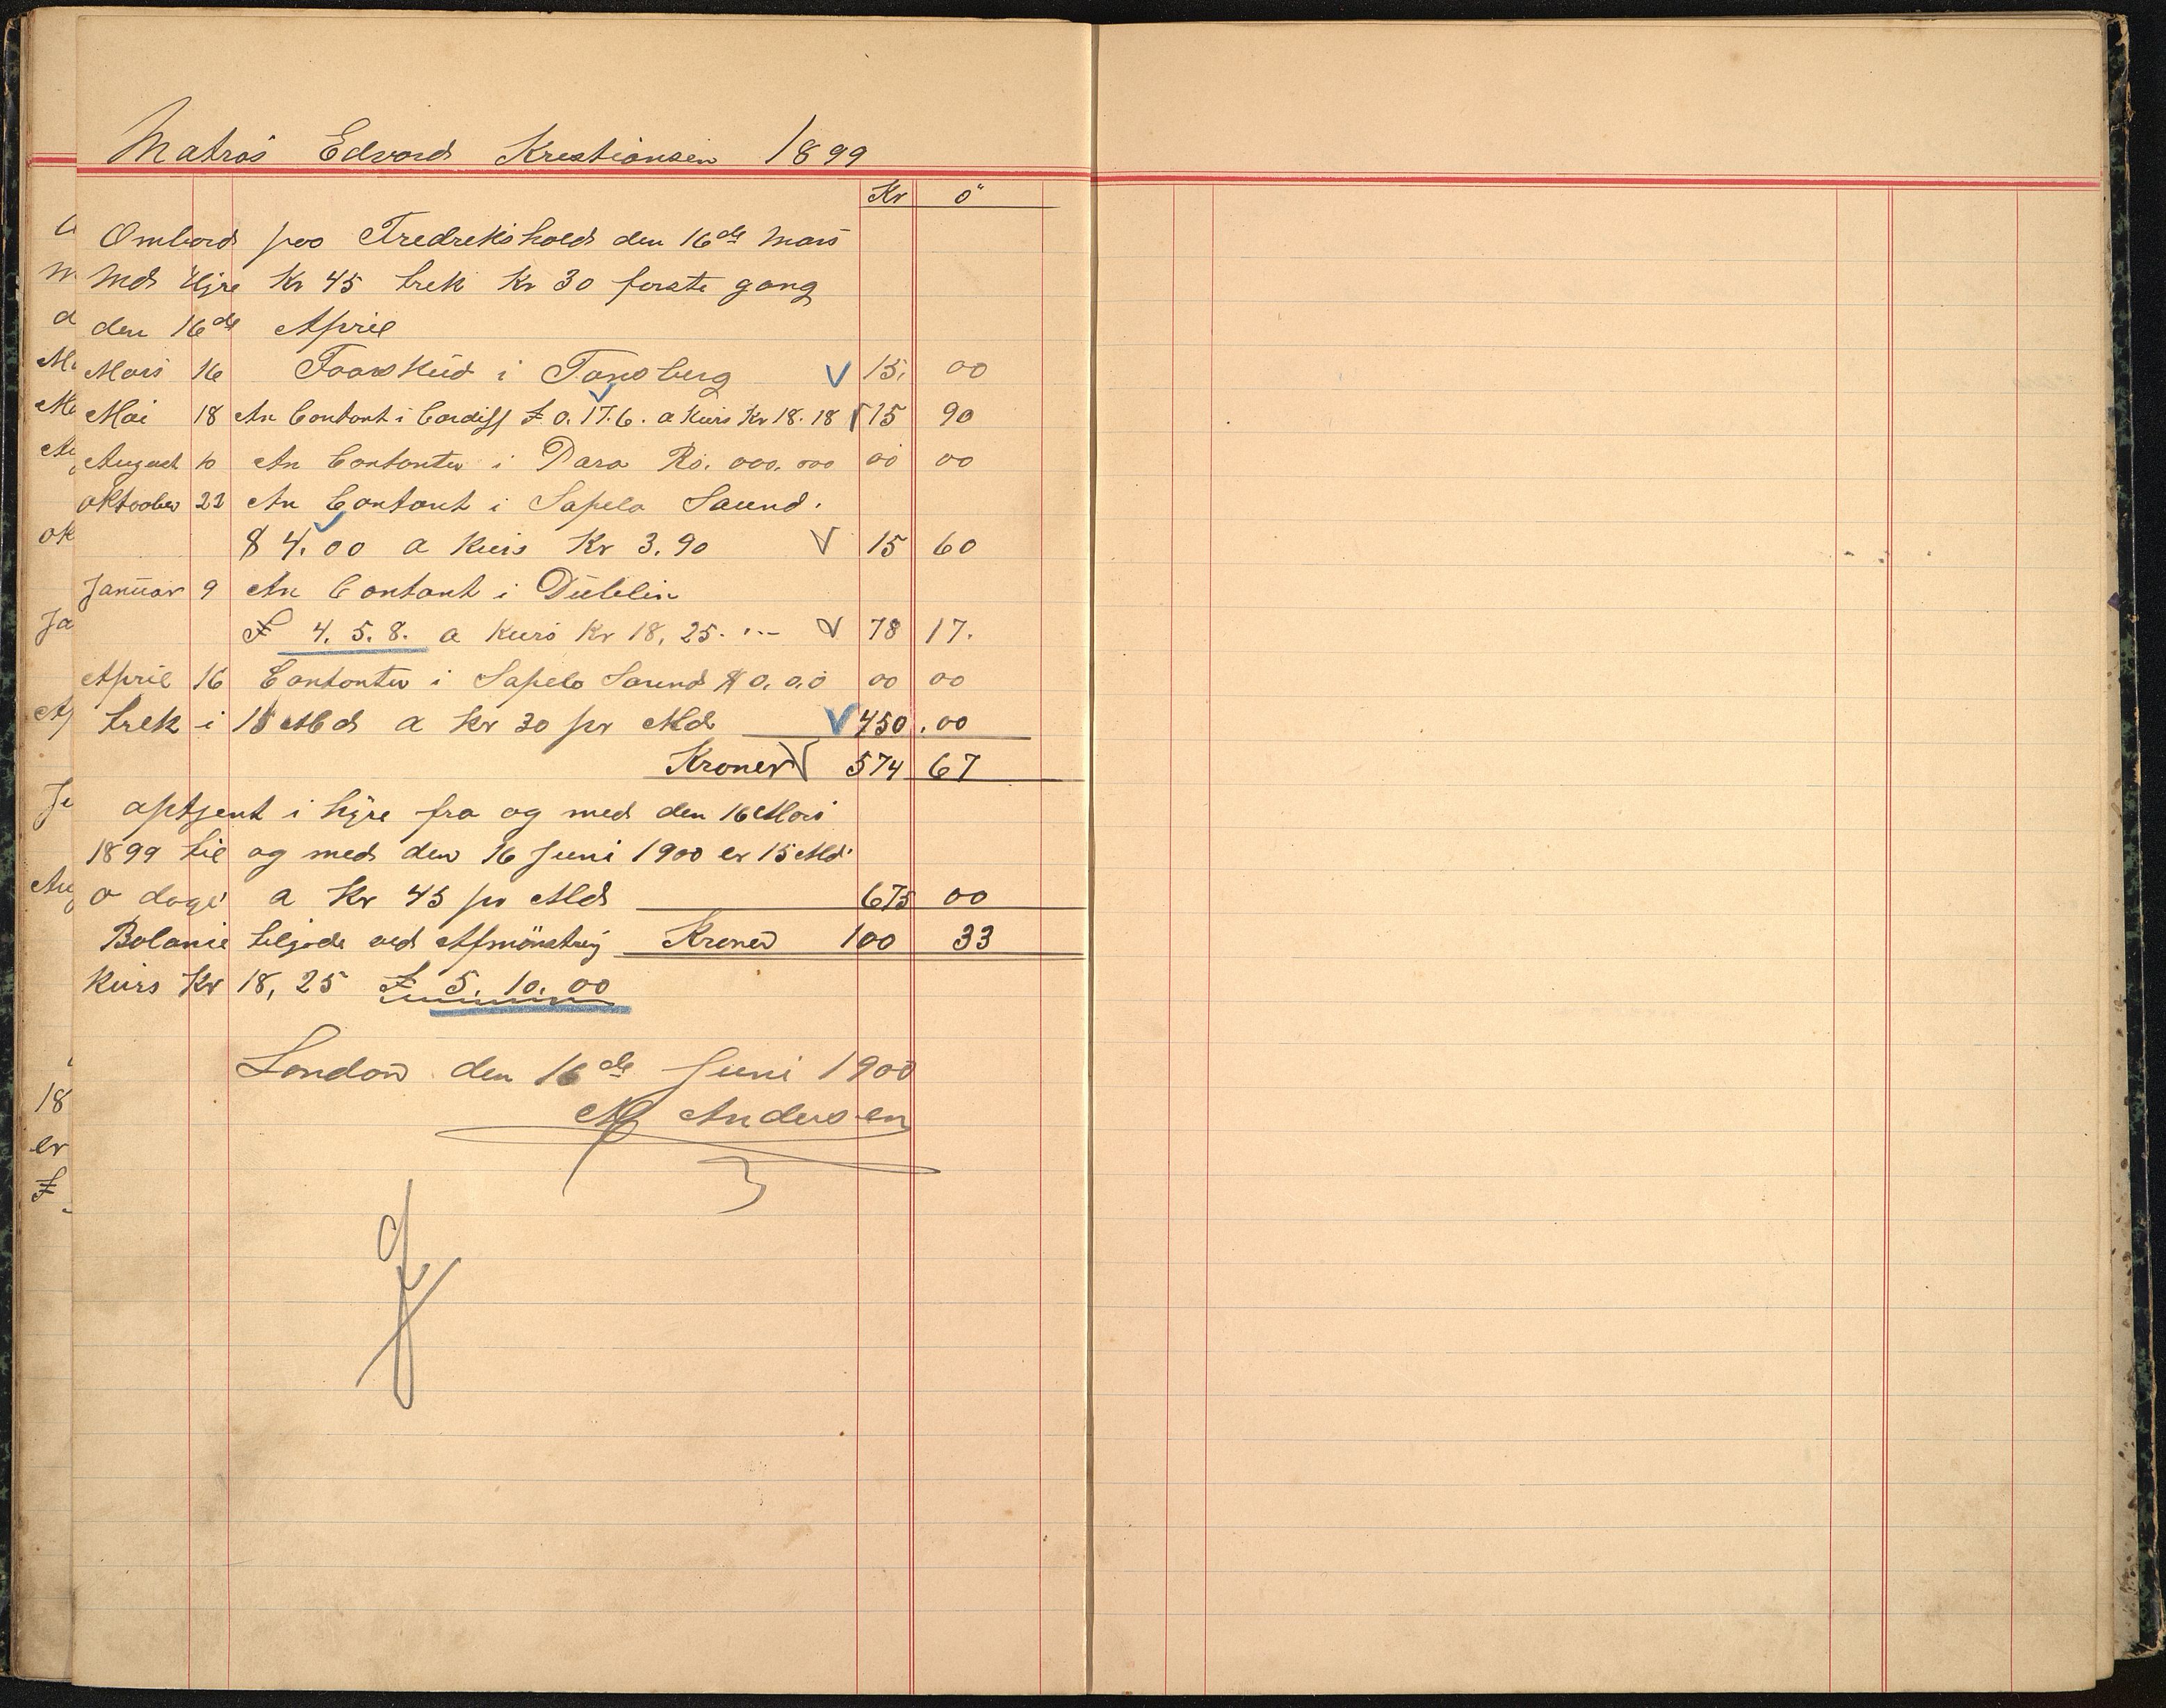 Matros Edvard Krestiansen 1899
Kr ö
Ombord paa Fredreksholds den 16de Mars
Md Hyre Kr 45 trek Kr 30 førate gang
den 16de April
Mars 16 Forskud i Tønsberg 15. 00
Mai 18 An Contant i Cardiff £ 0. 17. 6. a Kurs Kr 18. 18 15 90
August 10 An Contanter i Para Rs. 000. 000 00 00
Oktoober 22 An Contant i Sapelo Saund.
$ 4. 00 a Kurs Kr 3. 90 15 60
Januar 9 An Contant i Dublin
£ 4. 5. 8. a Kurs Kr 18, 25. 78 17.
April 16 Contanter i Sapelo Saund $ 0. 0.0 00 00
trek i 15 Md a Kr 30 pr Md 450. 00
Kroner 574 67
optjent i hyre fra og med den 16 Mars
1899 til og med den 16 Juni 1900 er 15 Md.
0 dage a Kr 45 pr Md 675 00
Balanse tilgode ved Afmönstring Kroner 100 33
Kurs Kr 18, 25 £ 5. 10. 00
London den 16de Juni 1900
M Andersen
Me
Ok
Ja
Ap
Aug
18
er
£